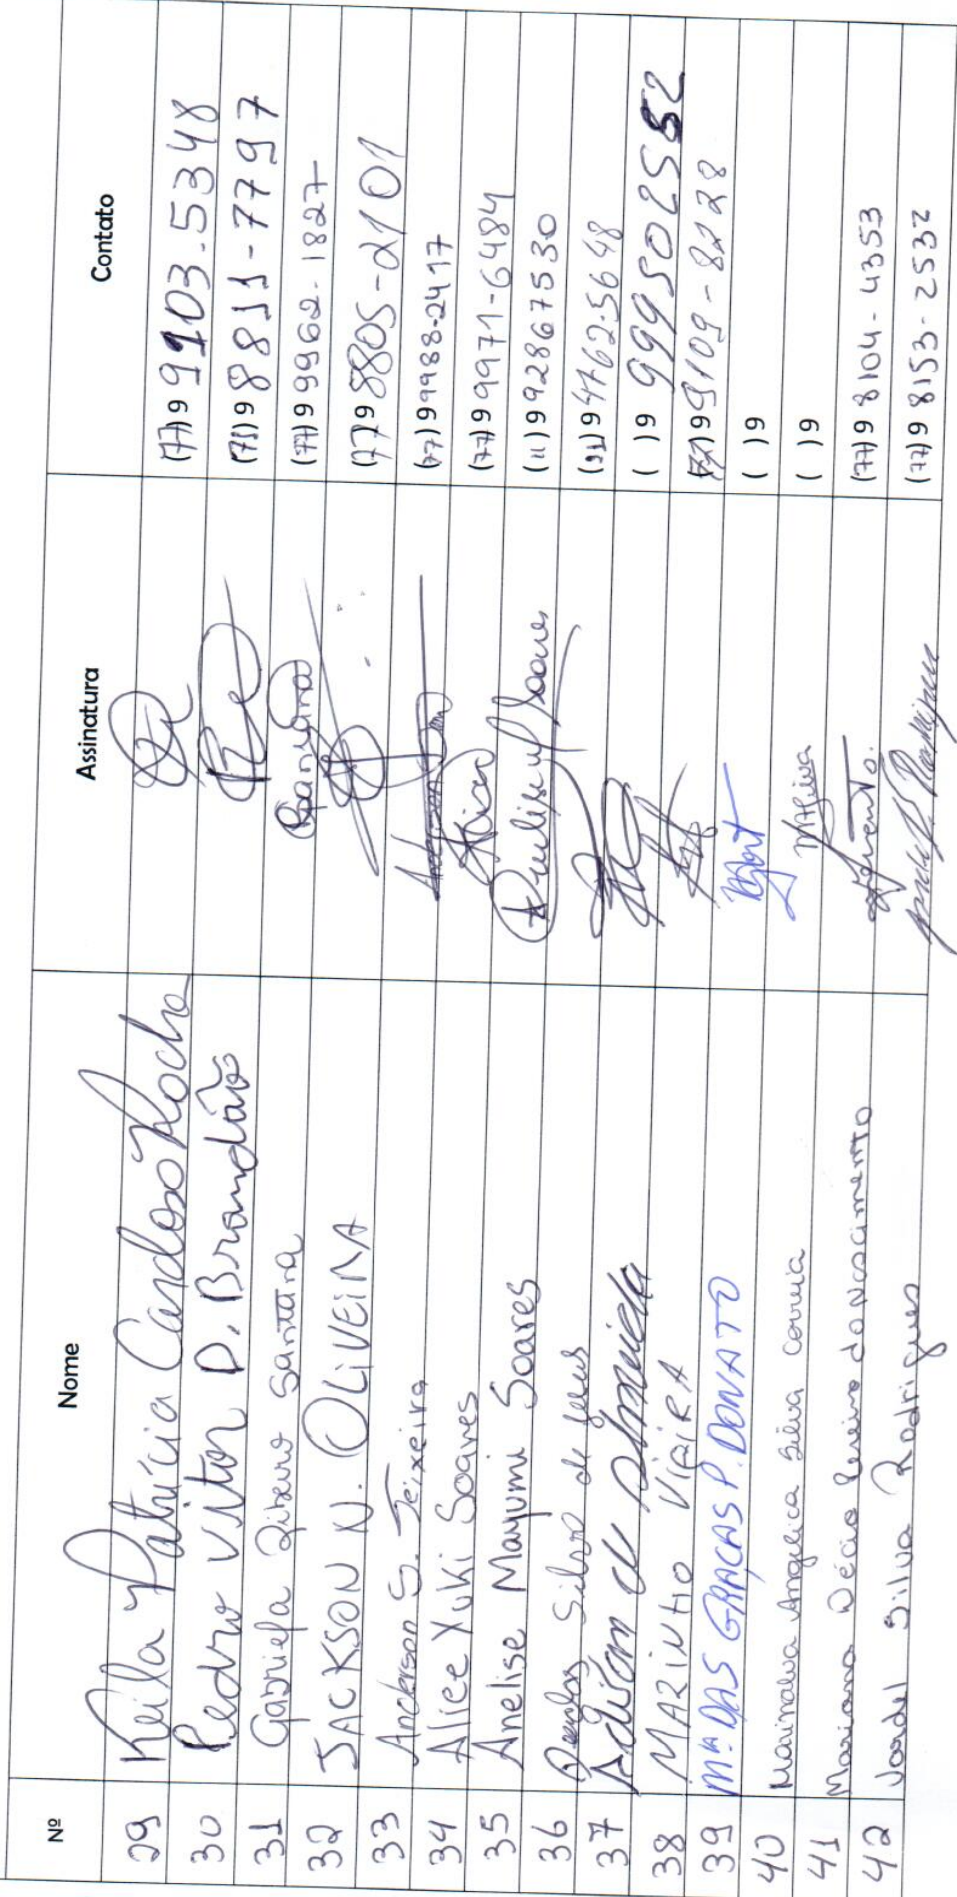 Nº Nome Assinatura Contato
29 Keila Patrícia Cardoso Rocha (77) 9 9103-5348
30 Pedro Vitor D. Brandão (75) 9 8811-7797
31 Gabriela Ribeiro Santana (77) 9 9962-1827
32 JACKSON N. OLIVEIRA (77) 9 8805-2101
33 Anderson S. Teixeira (77) 9 9988-2417
34 Alice Yuki Soares (77) 9 9971-6484
35 Anelise Mayumi Soares (11) 9 928667530
36 Silva de Jesus (31) 9 47625648
37 Adilson Almeida ( ) 9 999502552
38 MARINHO VIEIRA 9 9109-8228
39 Mª DAS GRAÇAS P. DONATO ( ) 9
40 Marinalva Angelica Silva Correia ( ) 9
41 Mariana Décio do Nascimento (77) 9 8104-4353
42 Jordel Silva Rodrigues (77) 9 8153-2532